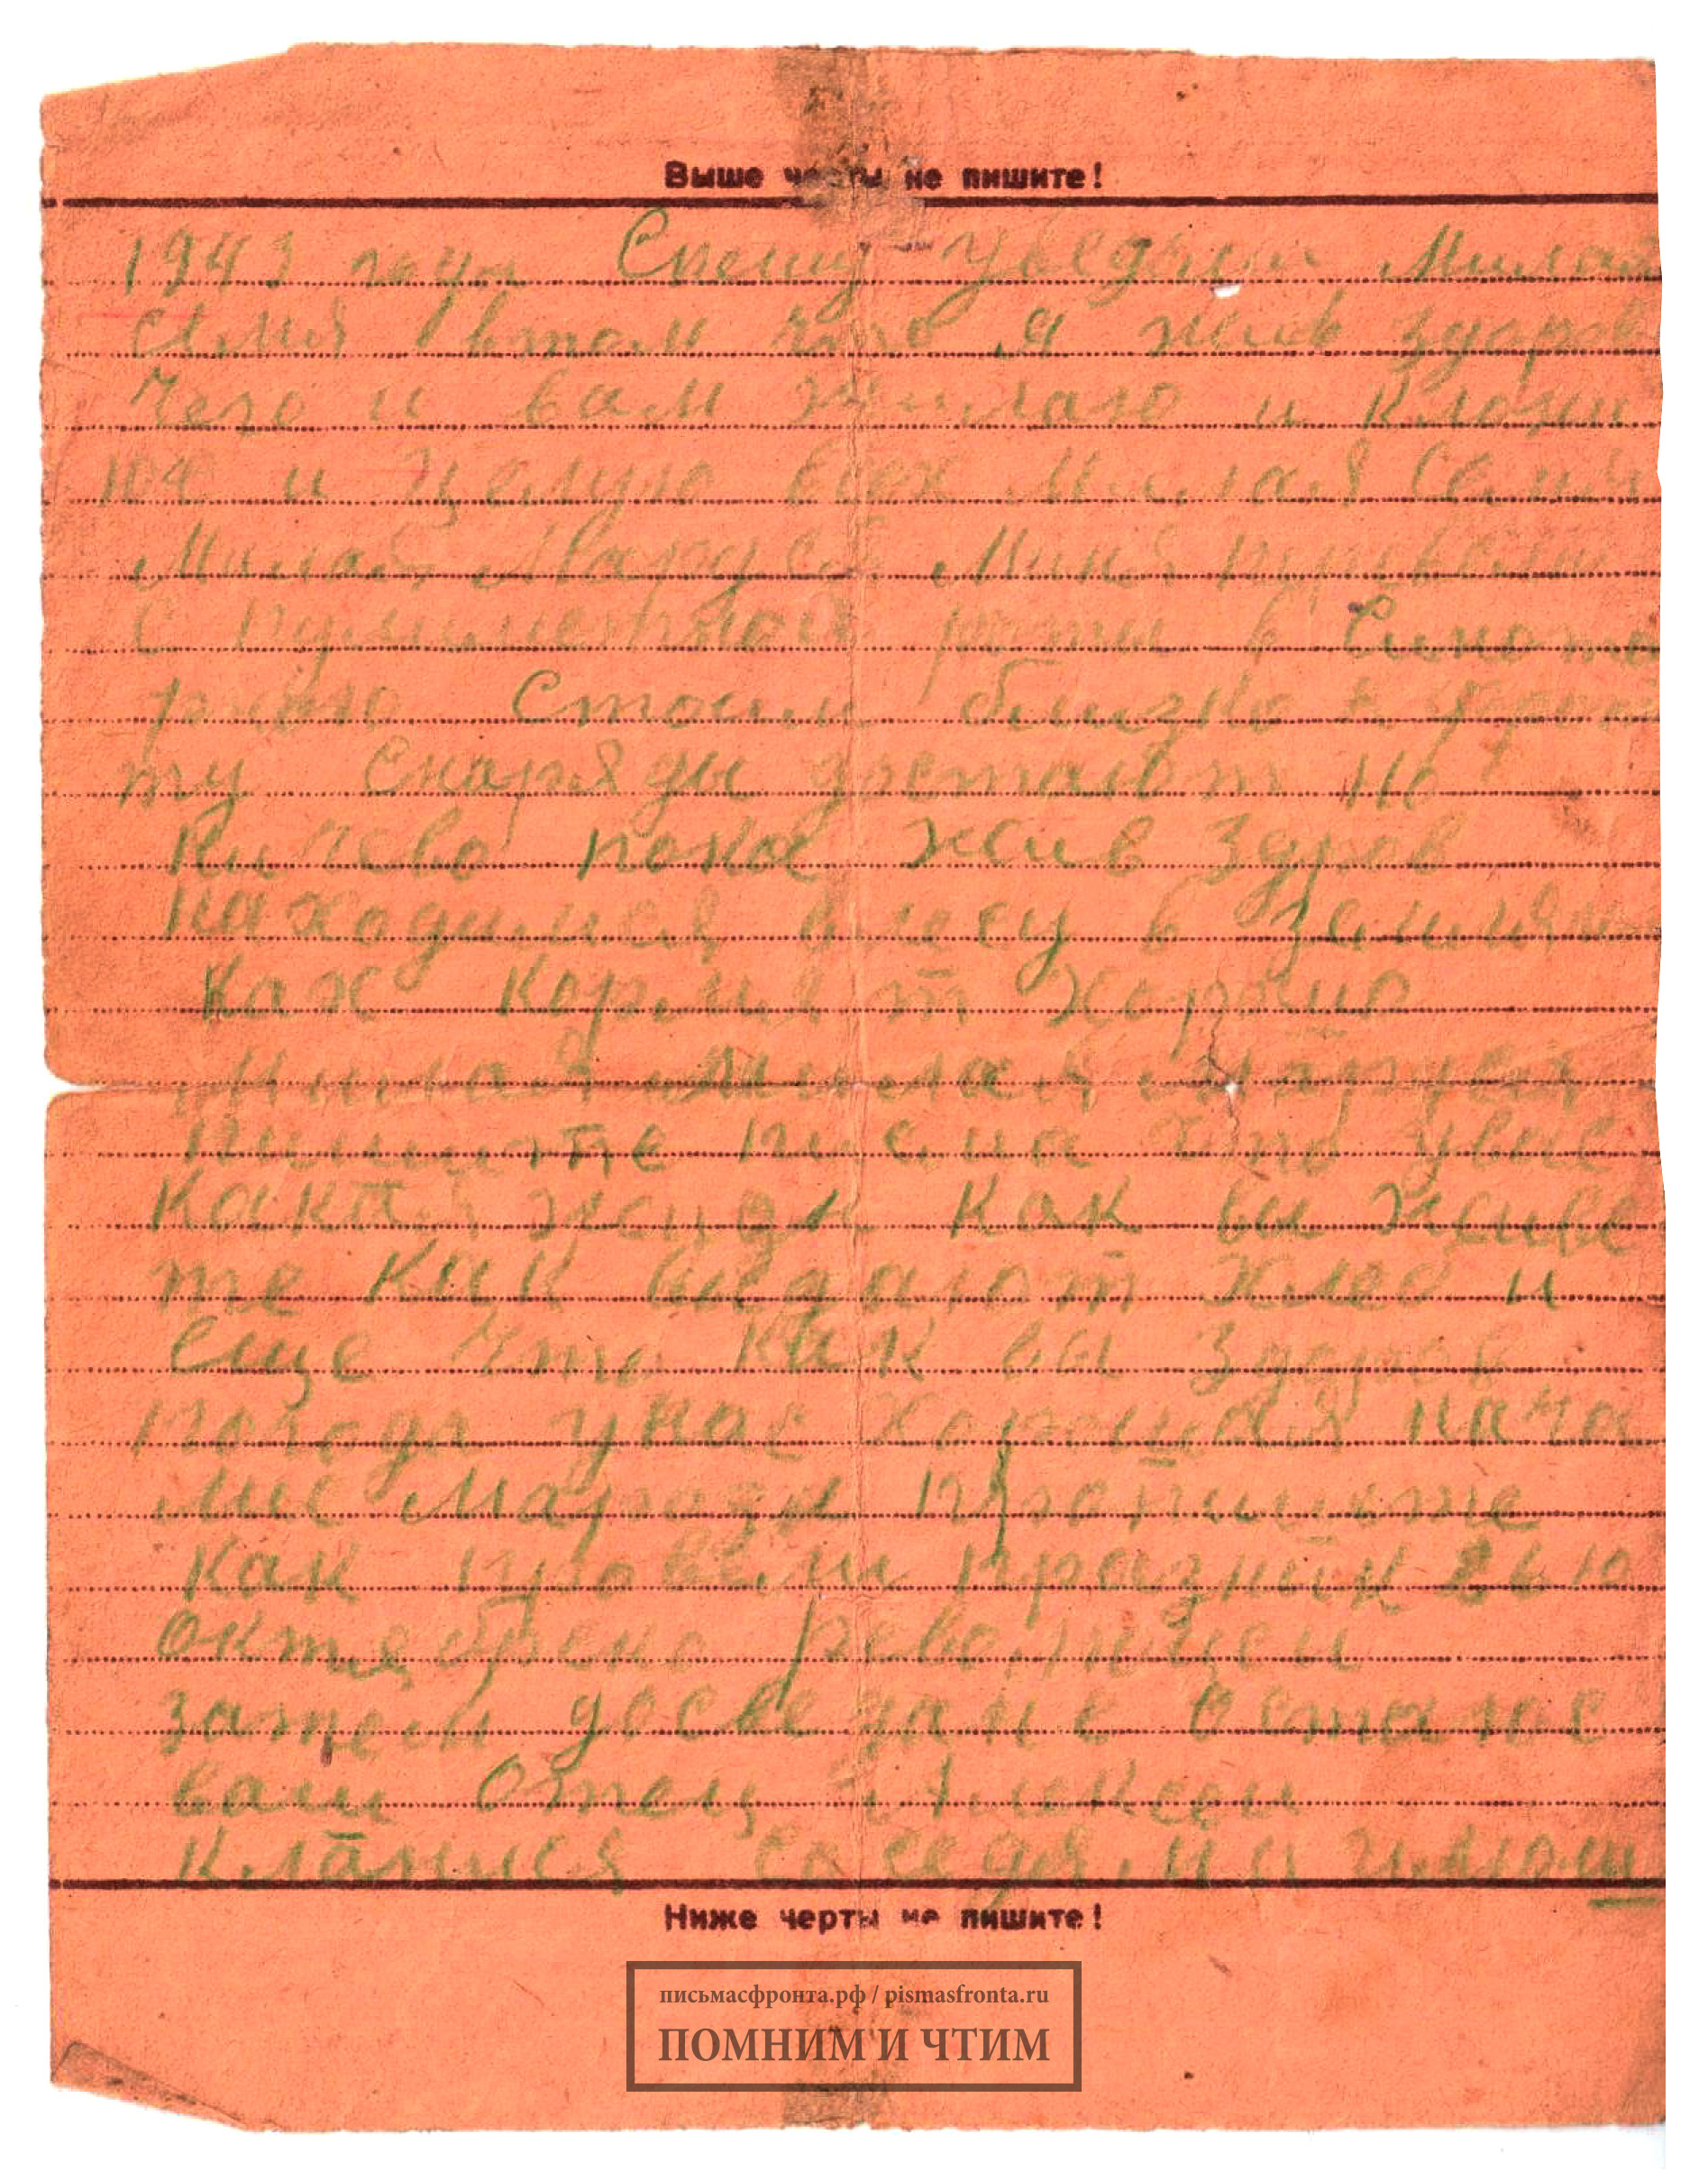 Выше черты не пишите!
1943 года Спешу уведячи Милая
семя втом что я жив здоров
чего и вам желаю и клони
юя и целую всех Милая Семя
Милая Маруся Миня перевели
с пулиметной роты в
роту Стоим близко к фрон
ту Снаряды достают но
Ничево пока жив здоров
находимся влесу в землян
ках кормят хорошо
Милая Милая Маруся
пишите писма что увас
какая жизня как вы живе
те как выдают хлеб и
еще что как вы здоров
погода унас хорошая нача
лис Марозы пропишите
как провели празник
октебрено револицеи
затем досведане Остаюс
ваш Отец Алексеи
Кланися соседями
Ниже черты не пишите!
письмасфронта.рф / pismasfronta.ru
ПОМНИМ И ЧТИМ